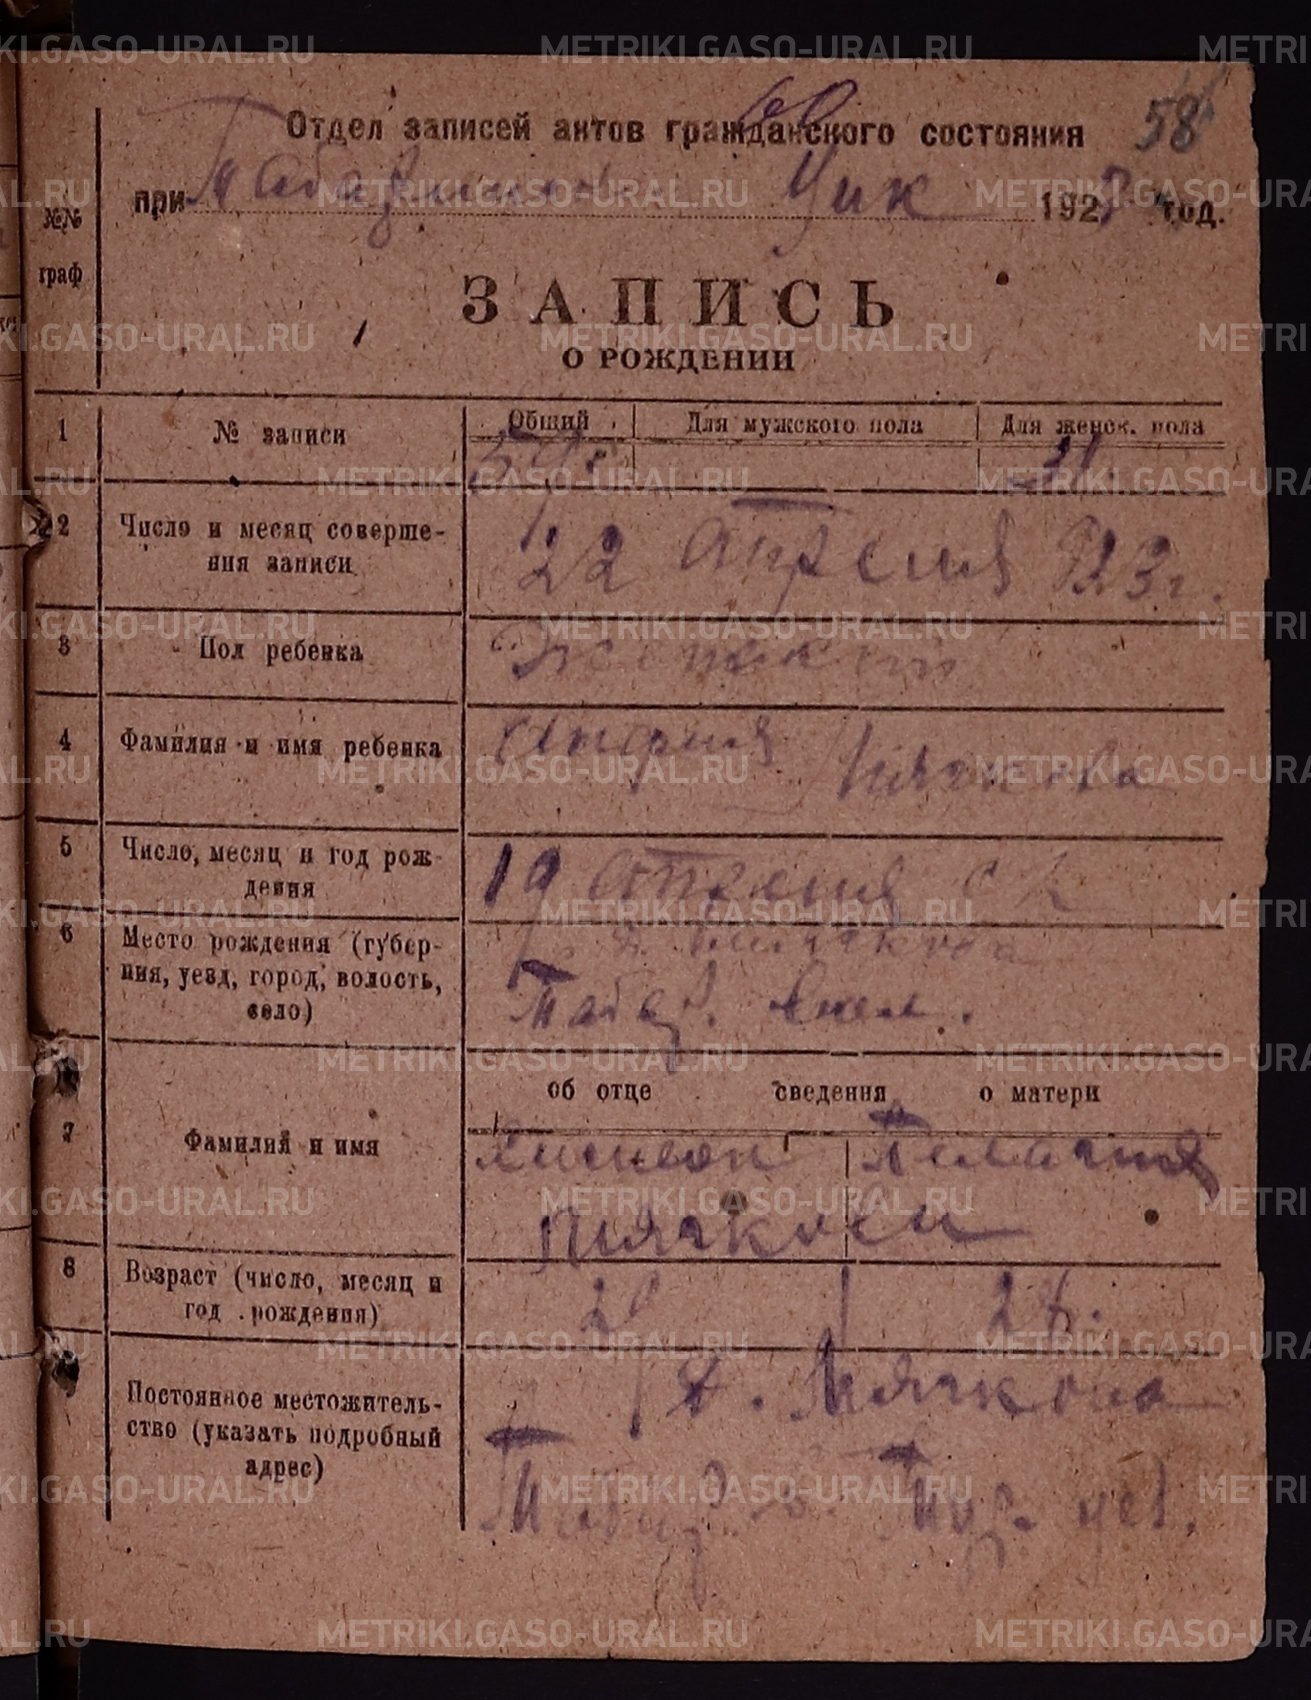 58
Отдел записей актов гражданского состояния
при Уик 1923 год.
№№
граф
ЗАПИСЬ
О РОЖДЕНИИ
1 № записи Общий Для мужского пола Для женск. пола
2 Число и месяц соверше-
ния записи 22 Апреля 923 г.
3 Пол ребенка Женский
4 Фамилия и имя ребенка Мячкова
5 Число, месяц и год рож-
дения 19 Апреля с г
6 Место рождения (губер-
ния, уезд, город, волость,
село) д. Мячкова
Табар.
об отце сведения о матери
7 Фамилия и имя Пелагия
Мячковы
8 Возраст (число, месяц и
год рождения)
Постоянное местожитель-
ство (указать подробный
адрес) д. Мячкова
Табар. в. уез.
METRIKI.GASO-URAL.RU